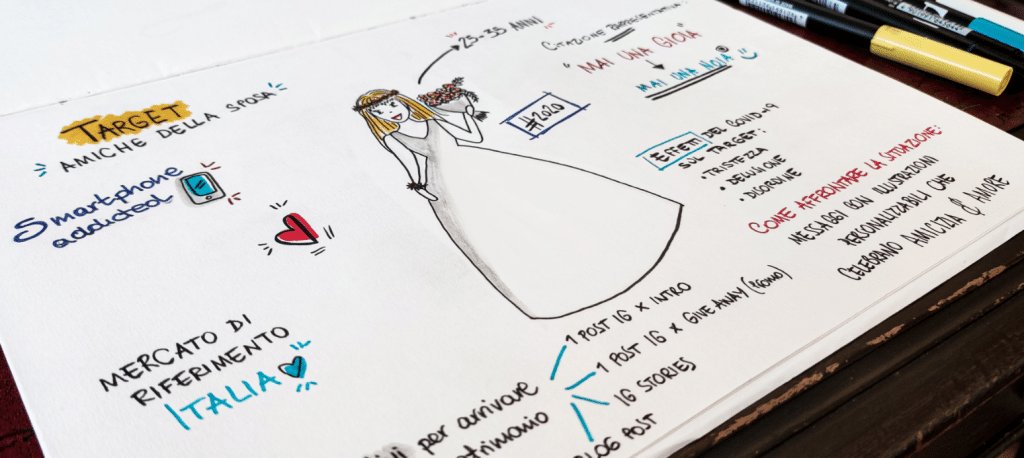 TARGET
AMICHE DELLA SPOSA
Smartphone
addicted
MERCATO DI
RIFERIMENTO
ITALIA
25-35 ANNI
CITAZIONE RAPPRESENTATIVA
"MAI UNA GIOIA"
MAI UNA NOIA
#2020
EFFETTI DEL COVID-19
SUL TARGET:
• TRISTEZZA
• DELUSIONE
• DISORDINE
COME AFFRONTARE LA SITUAZIONE:
MESSAGGI CON ILLUSTRAZIONI
PERSONALIZZABILI CHE
CELEBRANO AMICIZIA & AMORE
per arrivare
1 POST IG X INTRO
1 POST IG X GIVEAWAY (PROMO)
IG STORIES
BLOG POST